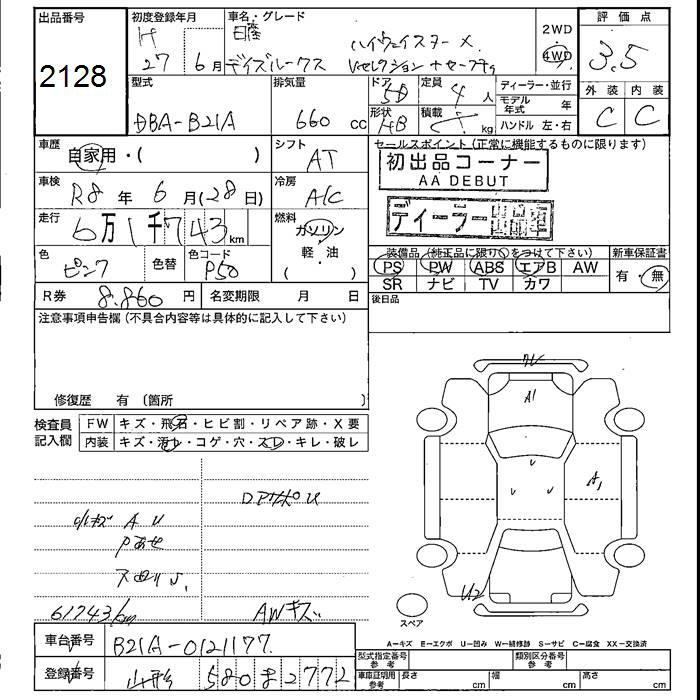 出品番号
2128
初度登録年月
H
27 6月
車名・グレード
日産
デイズルークス
ハイウェイスター X
Vセレクション+セーフティ
2WD
4WD
評価点
3.5
外装 内装
C C
型式
DBA-B21A
排気量
660 cc
ドア
5D
形状
HB
定員
4 人
積載
kg
ディーラー・並行
モデル年式 年
ハンドル 左・右
車歴
自家用・( )
シフト
AT
車検
R8 年 6 月(28日)
冷房
A/C
走行
6万1千743 km
燃料
ガソリン
軽・油
( )
色
ピンク
色替
色コード
P50
R券 8.860 円
名変期限 月 日
セールスポイント(正常に機能するものに限ります)
初出品コーナー
AA DEBUT
ディーラー出品車
装備品(純正品に限り○をつけて下さい)
PS PW ABS エアB AW
SR ナビ TV カワ
新車保証書
有・無
後日品
注意事項申告欄(不具合内容等は具体的に記入して下さい)
修復歴 有(箇所 )
検査員
記入欄
FW キズ・飛石・ヒビ割・リペア跡・X要
内装 キズ・汚れ・コゲ・穴・スレ・キレ・破レ
小キズ A U
61743km
AWキズ
A1
A1
U2
スペア
A−キズ E−エクボ U−凹み W−補修跡 S−サビ C−腐食 XX−交換済
車台番号 B21A-0121177
登録番号 山形 580 ま 2772
型式指定番号
参考
類別区分番号
参考
車庫証明用
参考
長さ cm 幅 cm 高さ cm